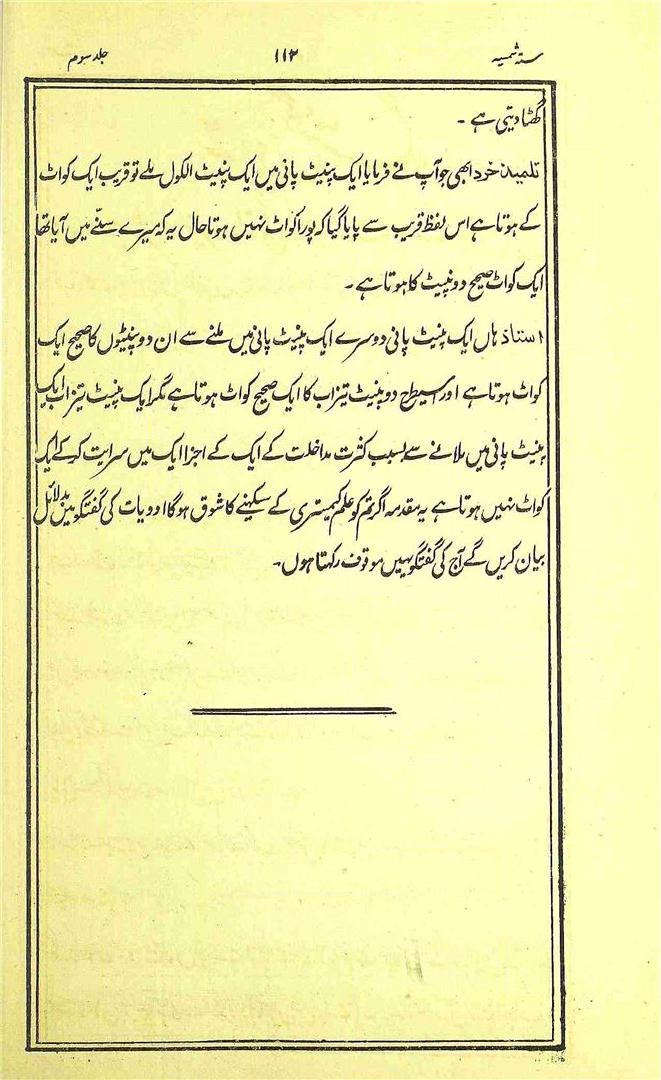 ستہ شمسیہ ۱۱۲ جلد سوم
گھٹا دیتی ہے ۔
تلمیذ خرد ابھی جو آپ نے فرمایا ایک پنیٹ پانی میں ایک پنیٹ الکول ملے تو قریب ایک کواٹ
کے ہوتا ہے اس لفظ قریب سے پایا گیا کہ پورا کواٹ نہیں ہوتا حال یہ کہ میرے سننے میں آیا تھا
ایک کواٹ صحیح دو پنیٹ کا ہوتا ہے ۔
استاد ہاں ایک پنیٹ پانی دوسرے ایک پنیٹ پانی میں ملنے سے ان دو پنیٹوں کا صحیح ایک
کواٹ ہوتا ہے اور اسیطرح دو پنیٹ تیزاب کا ایک صحیح کواٹ ہوتا ہے مگر ایک پنیٹ تیزاب ایک
پنیٹ پانی میں ملانے سے بسبب کثرت مداخلت کے ایک کے اجزا ایک میں سرایت کر کے ایک
کواٹ نہیں ہوتا ہے یہ مقدمہ اگر تم کو علم کیمستری کے سیکہنے کا شوق ہوگا ادویات کی گفتگو میں بدلائل
بیان کریں گے آج کی گفتگو یہیں موقوف رکہتا ہوں ۔